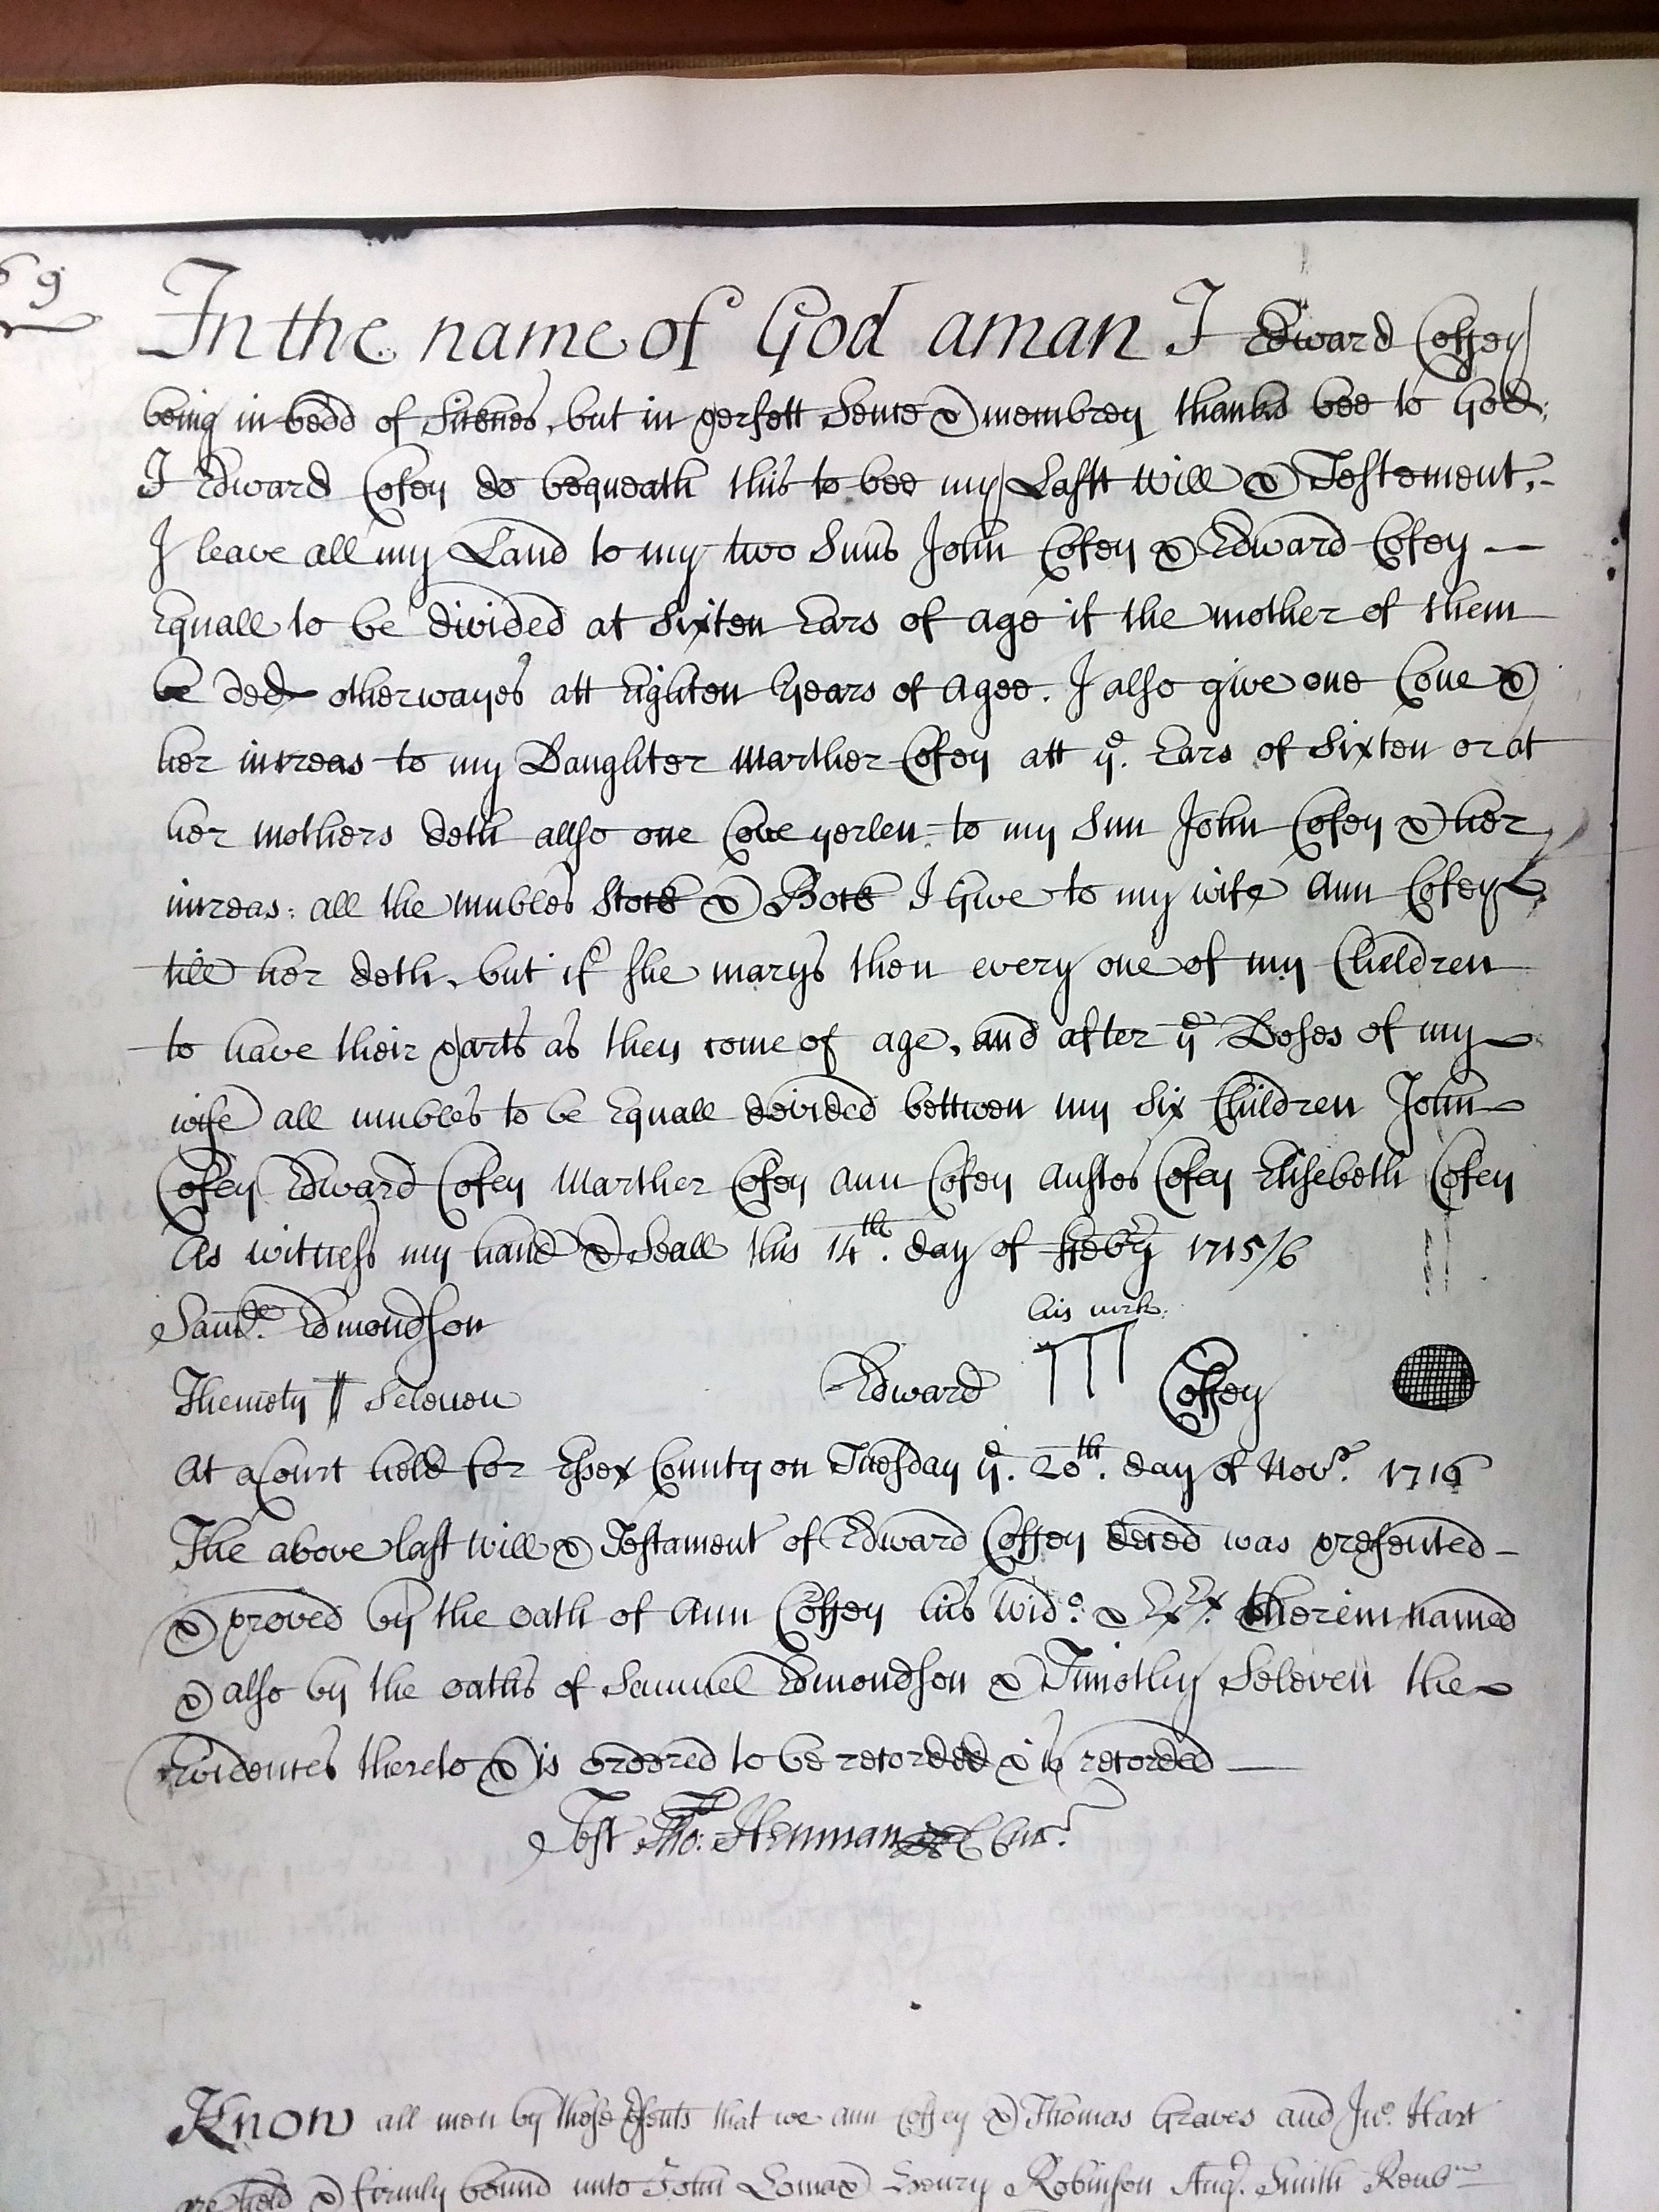 69
In the name of God aman I Edward Coffey
being in bedd of Sicknes, but in perfett Sence & membrey thanks bee to God;
I Edward Cofey do bequeath this to bee my Lastt Will & Testement.-
I leave all my Land to my two Suns John Cofey & Edward Cofey —
Equall to be divided at Sixten Ears of age if the mother of them
be ded otherwayes att Eighten Years of Agee. I also give one Coue &
her increas to my Daughter Marther Cofey att ye. Ears of Sixten or at
her mothers deth allso one Coue yerlen to my Sun John Cofey & her
increas: all the mubles Stock & Bock I Give to my wife Ann Cofey
till her deth, but if she marys then every one of my Children
to have their parts as they come of age, and after ye Deses of my
wife all mubles to be Equall devided bettwen my Six Children John
Cofey Edward Cofey Marther Cofey Ann Cofey Austes Cofey Elisebeth Cofey
As witness my hand & Seall this 14th. day of ffebry 1715/6
Saml. Edmondson
his mrk.
Themoty Seleven
Edward Coffey
At a Court held for Essex County on Tuesday ye. 20th. day of Novr. 1716
The above last Will & Testament of Edward Coffey deced was presented —
& proved by the oath of Ann Coffey his Wido. & Exx. therein named
& also by the oaths of Samuel Edmondson & Timothy Seleven the
Evidences thereto & is ordered to be recorded & is recorded —
Test Tho: Henman Cur.
Know all men by these psents that we Ann Coffey & Thomas Graves and Jno. Hart
are held & firmly bound unto John Lomax Henry Robinson Aug. Smith